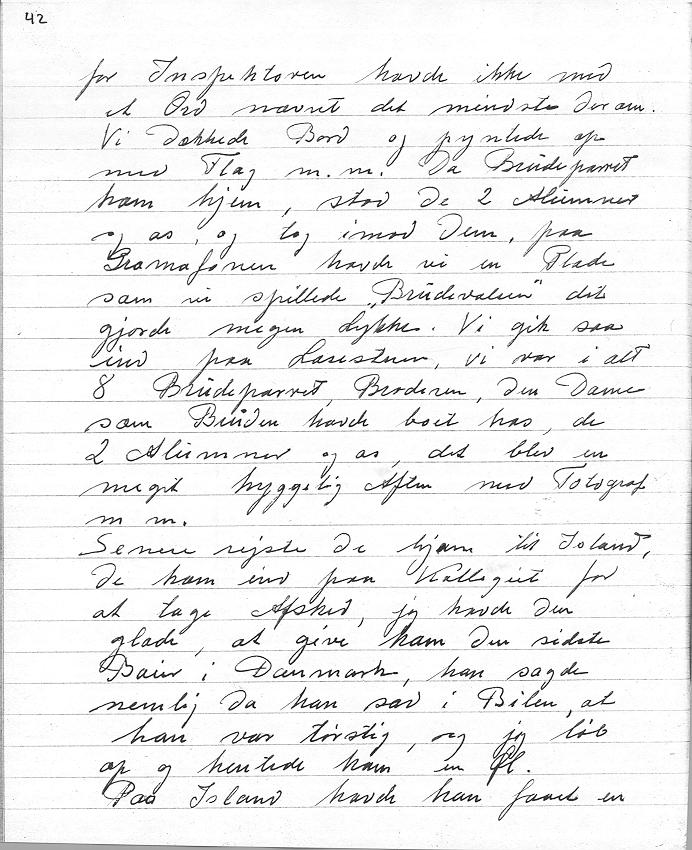 42
for Inspektoren havde ikke med
et Ord nævnet det mindste derom.
Vi dækkede Bord og pyntede op
med Flag m.m. Da Brudeparret
kom hjem, stod de 2 Alumner
og os, og tog imod dem, paa
Gramafonen havde vi en Plade
som vi spillede „Brudevalsen" det
gjorde megen Lykke. Vi gik saa
ind paa Læsestuen, vi var i alt
8 Brudeparret, Broderen, den Dame
som Bruden havde boet hos, de
2 Alumner og os, det blev en
meget hyggelig Aften med Fotograf
m m.
Senere rejste de hjem til Island,
de kom ind paa Kollegiet for
at tage Afsked, jeg havde den
glæde, at give ham den sidste
Baier i Danmark, han sagde
nemlig da han sad i Bilen, at
han var tørstig, og jeg løb
op og hentede ham en fl.
Paa Island havde han faaet en